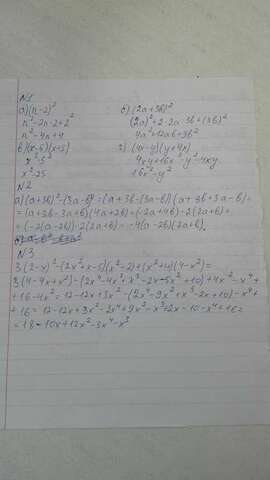 N1
а) (n-2)²
n²-2n·2+2²
n²-4n+4
б) (x-5)(x+5)
x²-5²
x²-25
с) (2a+3b)²
(2a)²+2·2a·3b+(3b)²
4a²+12ab+9b²
г) (4x-y)(y+4x)
4xy+16x²-y²-4xy
16x²-y²
N2
а) (a+3b)²-(3a-b)²=(a+3b-(3a-b))(a+3b+3a-b)=
=(a+3b-3a+b)(4a+2b)=(-2a+4b)·2(2a+b)=
=(-2(a-2b))·2(2a+b)=-4(a-2b)(2a+b)
N3
3(2-x)²-(2x²+x-5)(x²-2)+(x²+4)(4-x²)=
3(4-4x+x²)-(2x⁴-4x²+x³-2x-5x²+10)+4x²-x⁴+
+16-4x²=12-12x+3x²-(2x⁴-9x²+x³-2x+10)-x⁴+
+16=12-12x+3x²-2x⁴+9x²-x³+2x-10-x⁴+16=
=18-10x+12x²-3x⁴-x³